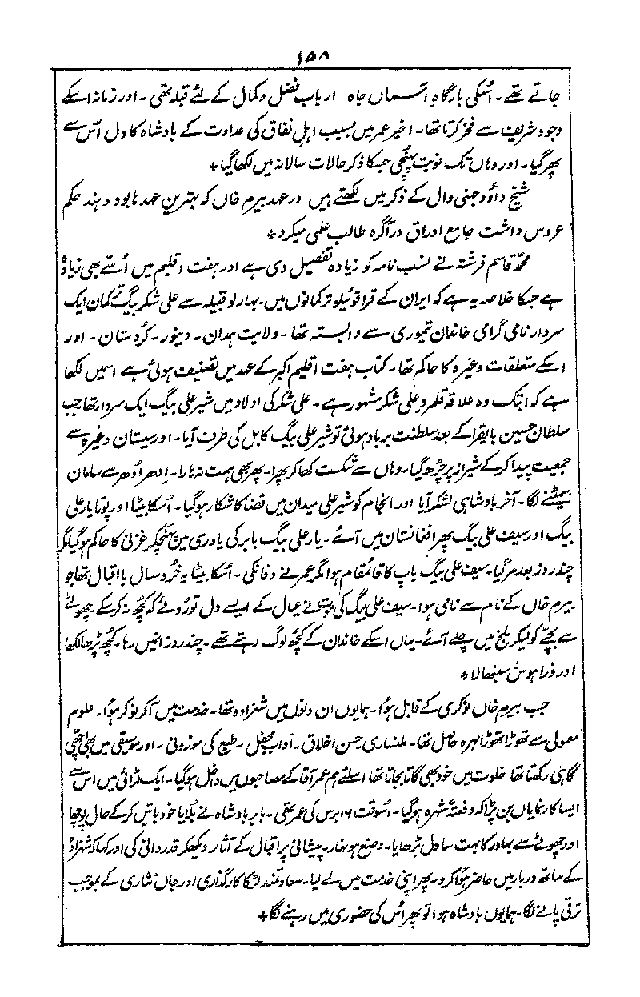 ۱۵۸
جاتے تھے۔ اُسکی بارگاہ آسماں جاہ ارباب فضل و کمال کے لئے قبلہ تھی۔ اور زمانہ اسکے
وجود شریف سے فخر کرتا تھا۔ اخیر عمر میں بسبب اہل نفاق کی عداوت کے بادشاہ کا دل اُس سے
پھر گیا۔ اور وہاں تک نوبت پہنچی جسکا ذکر حالات سالانہ میں لکھا گیا ٭
شیخ داؤد جہنی وال کے ذکر میں لکھتے ہیں در عہد بیرم خاں کہ بہترین عہدہا بود و ہند حکم
عروس داشت جامع اوراق در آگرہ طالب علمی میکرد ٭
محمد قاسم فرشتہ نے نسب نامہ کو زیادہ تفصیل دی ہے اور ہفت اقلیم میں اُس سے بھی زیادہ
ہے جسکا خلاصہ یہ ہے کہ ایران کے قراقوئیلو ترکمانوں میں۔ بہارلو قبیلہ سے علی شکر بیگ ترکمان ایک
سردار نامی گرامی خاندان تیموری سے وابستہ تھا۔ ولایت ہمدان۔ دینور۔ کردستان۔ اور
اسکے متعلقات وغیرہ کا حاکم تھا۔ کتاب ہفت اقلیم اکبر کے عہد میں تصنیف ہوئی ہے اسمیں لکھا
ہے کہ ابتک وہ علاقہ قلمرو علی شکر مشہور ہے۔ علی شکر کی اولاد میں شیر علی بیگ ایک سردار تھا جب
سلطان حسین بایقرا کے بعد سلطنت برباد ہوئی تو شیر علی بیگ کابل کی طرف آیا۔ اور سیستان وغیرہ سے
جمعیت پیدا کر کے شیراز پر چڑھ گیا۔ وہاں سے شکست کھا کر پھرا۔ پھر بھی ہمت نہ ہارا۔ ادھر اُدھر سے سامان
سمیٹنے لگا۔ آخر بادشاہی لشکر آیا اور انجام کو شیر علی میدان میں قضا کا شکار ہو گیا۔ اُسکا بیٹا اور پوتا یار علی
بیگ اور سیف علی بیگ پھر افغانستان میں آئے۔ یار علی بیگ بابر کی یاوری میں پہنچکر غزنی کا حاکم ہو گیا مگر
چند روز بعد مر گیا۔ سیف علی بیگ باپ کا قائم مقام ہوا مگر عمر نے وفا نکی۔ اُسکا بیٹا یہ خُرد سال با اقبال تھا جو
بیرم خاں کے نام سے نامی ہوا۔ سیف علی بیگ کی موت نے عیال کے ایسے دل توڑ دئے کہ کچھ نہ کر سکے چھوٹے
سے بچے کو لیکر بلخ میں چلے آئے۔ یہاں اسکے خاندان کے کچھ لوگ رہتے تھے۔ چند روز انہیں رہا۔ کچھ پڑھا لکھا
اور ذرا ہوش سنبھالا ٭
جب بیرم خاں نوکری کے قابل ہؤا۔ ہمایوں ان دنوں میں شہزادہ تھا۔ خدمت میں آکر نوکر ہؤا۔ علوم
معمولی سے تھوڑا تھوڑا بہرہ حاصل تھا۔ ملنساری حسن اخلاق۔ آداب محفل۔ طبع کی موزونی۔ اور موسیقی میں بھی اچھی
آگاہی رکھتا تھا خلوت میں خود بھی گاتا بجاتا تھا اسلئے ہم عمر آقا کے مصاحبوں میں داخل ہو گیا۔ ایک لڑائی میں اس سے
ایسا کار نمایاں بن پڑا کہ دفعتہً شہرہ ہو گیا۔ اُسوقت ۱۶ برس کی عمر تھی۔ بابر بادشاہ نے بلایا خود باتیں کر کے حال پوچھا
اور چھوٹے سے بہادر کا بہت سا دل بڑھایا۔ وضع ہونہار۔ پیشانی پر اقبال کے آثار دیکھکر قدردانی کی اور کہا کہ شہزادہ
کے ساتھ دربار میں حاضر ہوا کرو۔ پھر اپنی خدمت میں لے لیا۔ سعادتمند لڑکا کارگذاری اور جاں نثاری کے بموجب
ترقی پانے لگا۔ ہمایوں بادشاہ ہوا تو پھر اُس کی حضوری میں رہنے لگا ٭